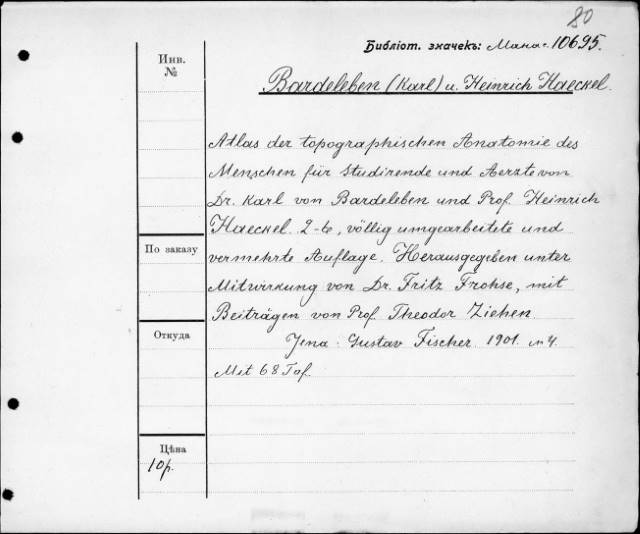 80
Библіот. значекъ: Мана. 10695.
Инв.
№
Bardeleben (Karl) u. Heinrich Haeckel.
Atlas der topographischen Anatomie des
Menschen für Studirende und Aerzte von
Dr. Karl von Bardeleben und Prof. Heinrich
Haeckel. 2-te, völlig umgearbeitete und
По заказу
vermehrte Auflage. Herausgegeben unter
Mitwirkung von Dr. Fritz Frohse, mit
Beiträgen von Prof. Theodor Ziehen.
Откуда
Jena: Gustav Fischer. 1901. in 4.
Met 68 Taf.
Цѣна
10р.